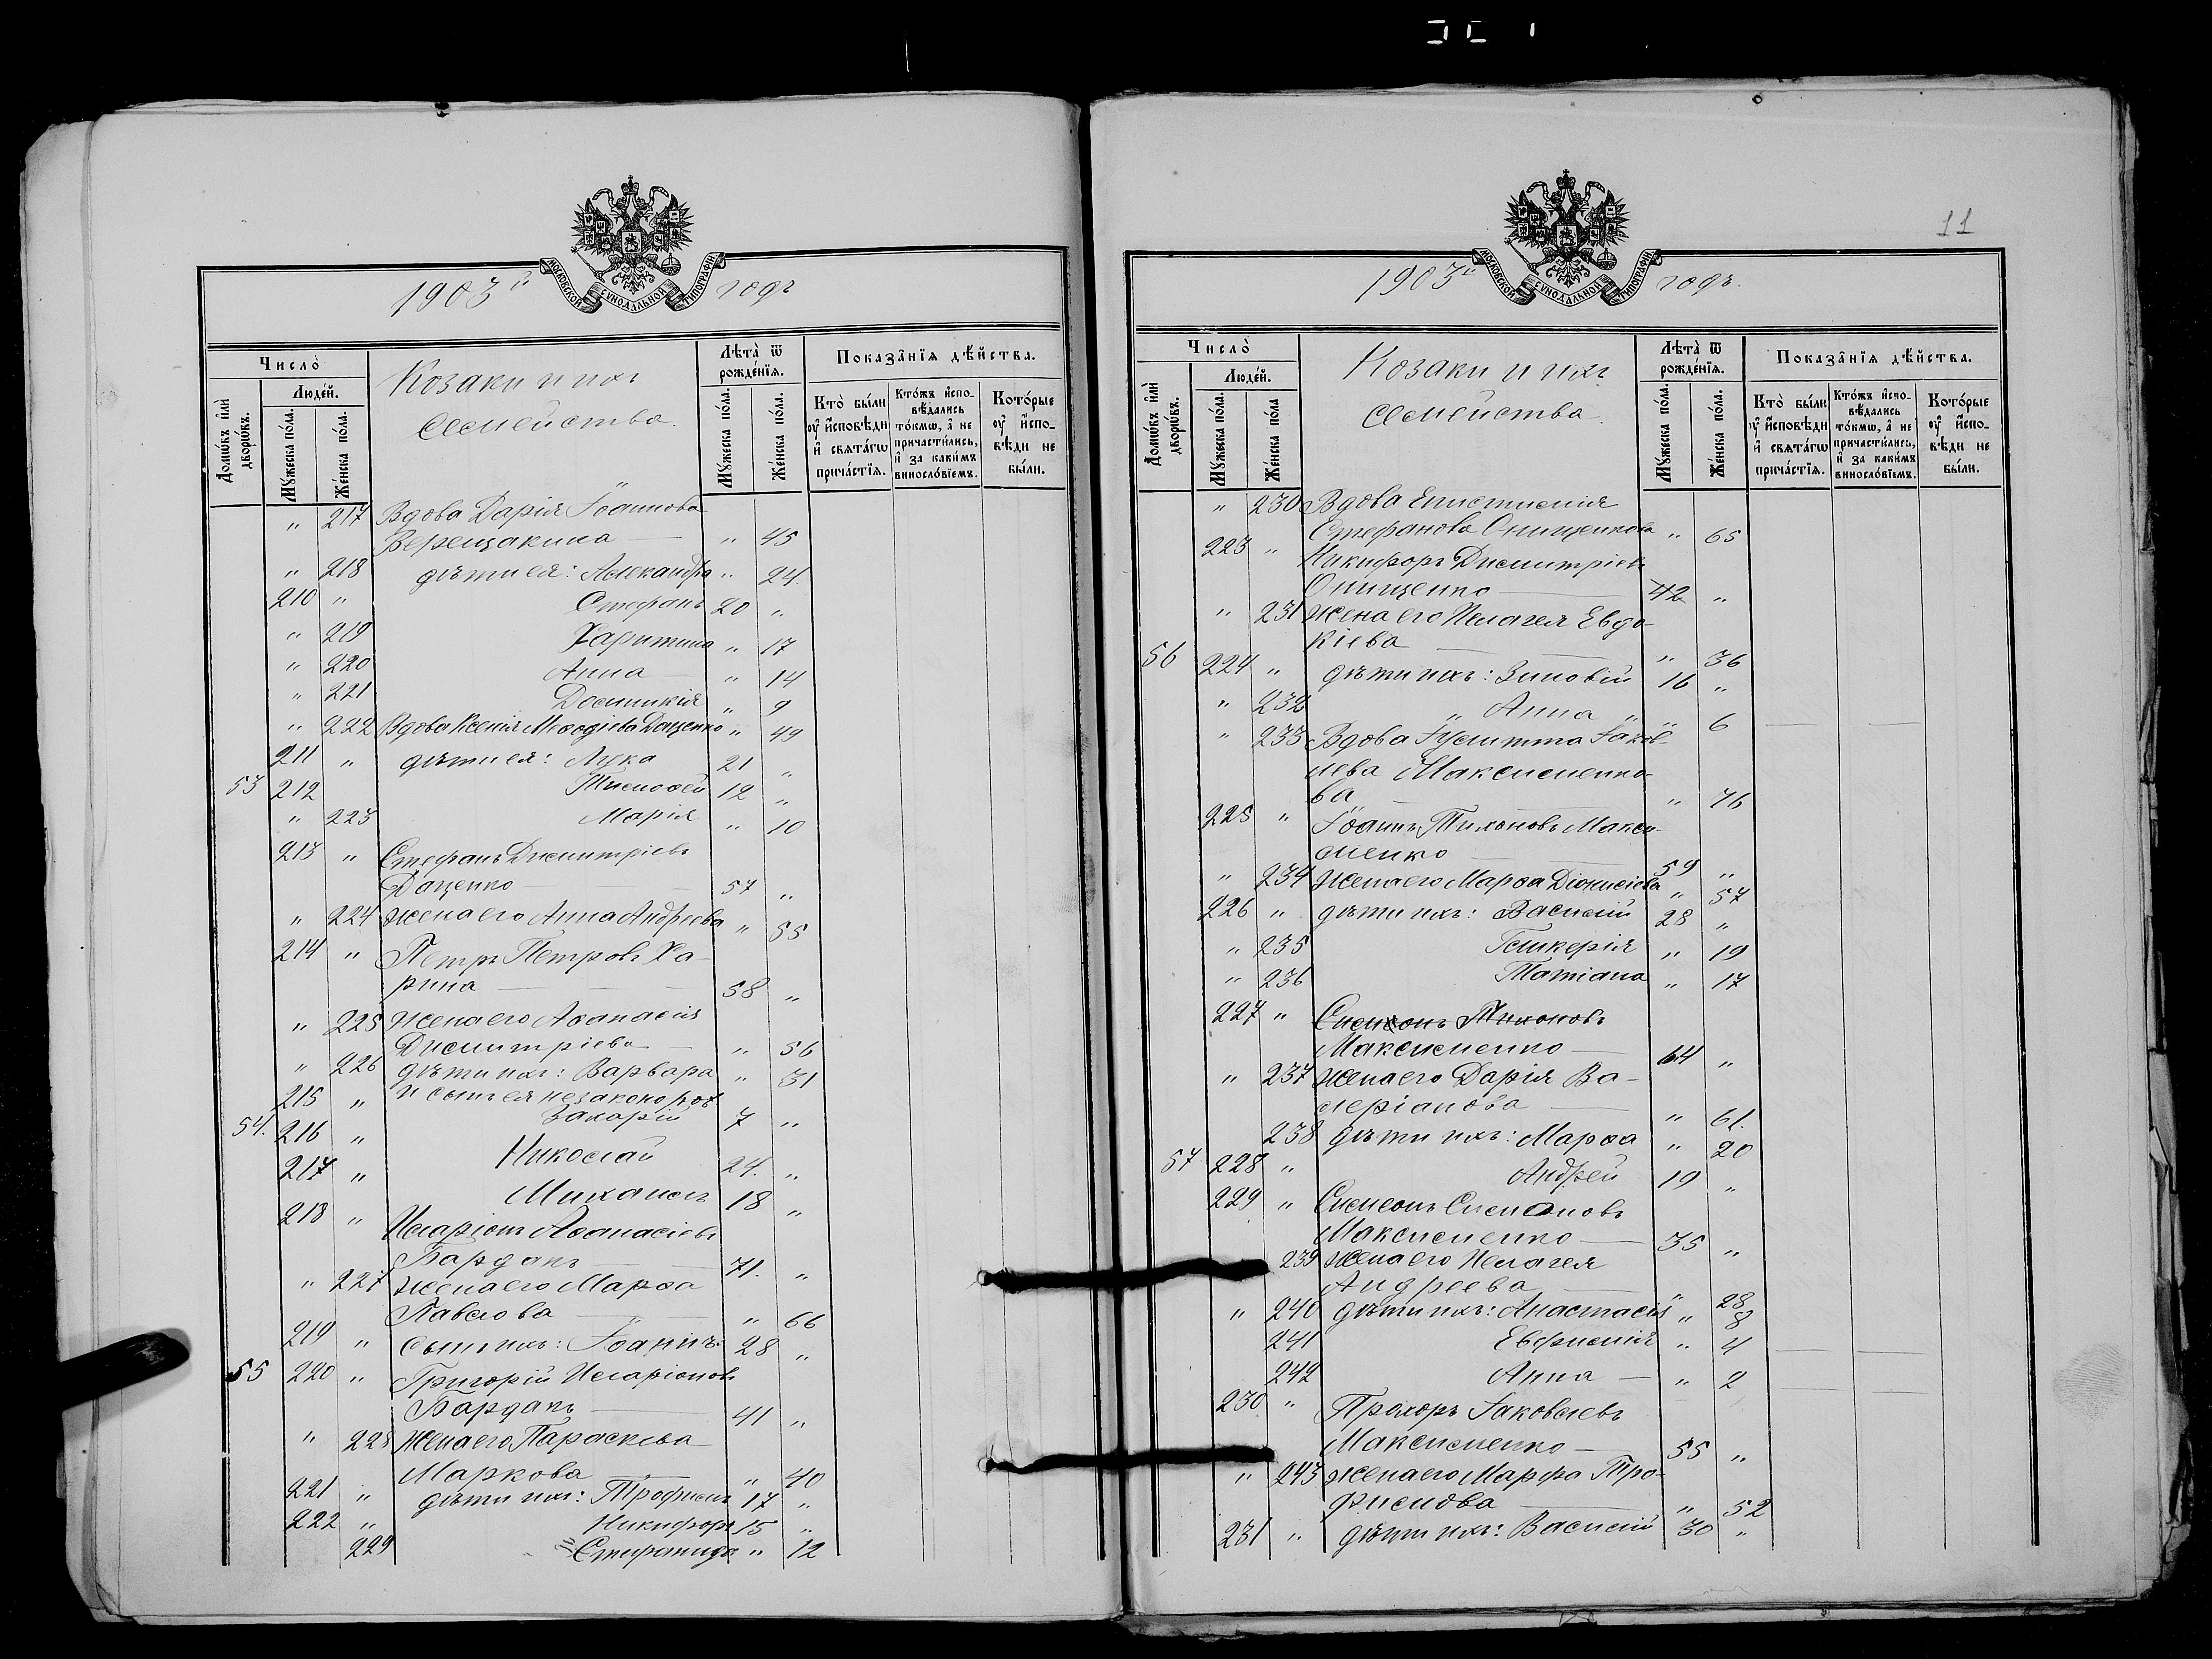 1903й годъ
МОСКОВСКОЙ СѴНОДАЛЬНОЙ ТИПОГРАФІИ
Число̀
Домѡ́въ и҆лѝ дворѡ́въ.
Люде́й.
Мꙋ́жеска по́ла.
Же́нска по́ла.
Козаки и ихъ
семейства.
Лѣ́та ѿ рожде́нїѧ.
Мꙋ́жеска по́ла.
Же́нска по́ла.
Показа̑нїѧ дѣ́йства.
Кто̀ бы́ли ᲂу҆ и҆сповѣ́ди и҆ свѧта́гѡ прича́стїѧ.
Кто́жъ и҆сповѣ́дались то́кмѡ, а҆ не причасти́лись, и҆ за каки́мъ винесло́вїемъ.
Кото́рые ᲂу҆ и҆сповѣ́ди не бы́ли.
" 217 Вдова Дарія Іоаннова
Верещакина — " 45
" 218 дѣти ея: Александра " 24
210 " Стефанъ 20 "
" 219 Харитина " 17
" 220 Анна " 14
" 221 Домникія " 9
" 222 Вдова Ксенія Меѳодіева Даценко " 49
211 " дѣти ея: Лука 21 "
53 212 Тимоѳей 12 "
" 223 Марія " 10
213 " Стефанъ Димитріевъ
Даценко — 57 "
" 224 жена его Анна Андреева " 55
214 " Петръ Петровъ Ха-
рина — 58 "
" 225 жена его Аѳанасія
Димитріева — " 56
" 226 дѣти ихъ: Варвара " 31
215 " и сынъ ея незаконорож
54. 216 " Захарій 7 "
217 " Николай 24. "
Михаилъ 18 "
218 " Иларіонъ Аѳанасіевъ
Барданъ — 71. "
" 227 жена его Марѳа
Павлова — " 66
219 " сынъ ихъ: Іоаннъ 28 "
55 220 " Григорій Иларіоновъ
Барданъ — 41 "
" 228 жена его Параскева
Маркова " 40
221 " дѣти ихъ: Трофимъ 17 "
222 " Никифоръ 15 "
229 Стефанида " 12
11
1903й годъ.
МОСКОВСКОЙ СѴНОДАЛЬНОЙ ТИПОГРАФІИ
Число̀
Домѡ́въ и҆лѝ дворѡ́въ.
Люде́й.
Мꙋ́жеска по́ла.
Же́нска по́ла
Козаки и ихъ
семейства.
Лѣ́та ѿ рожде́нїѧ.
Мꙋ́жеска по́ла.
Же́нска по́ла.
Показа̑нїѧ дѣ́йства.
Кто̀ бы́ли ᲂу҆ и҆сповѣ́ди и҆ свѧта́гѡ прича́стїѧ.
Кто́жъ и҆сповѣ́дались то́кмѡ, а҆ не причасти́лись, и҆ за каки́мъ винесло́вїемъ.
Кото́рые ᲂу҆ и҆сповѣ́ди не бы́ли.
" 230 Вдова Епистимія
Стефанова Онищенкова " 65
223 " Никифоръ Димитріевъ
Онищенко — 42 "
" 231 жена его Пелагея Евдо-
кіева — " 36
56 224 " дѣти ихъ: Зиновій 16 "
" 232 " Анна " " 6
" 233 Вдова Іулитта Іаков-
лева Максименко-
ва — " 76
225 " Іоаннъ Тихоновъ Макси-
менко — 59 "
" 234 жена его Марѳа Діонисіева " 57
226 " дѣти ихъ: Василій 28 "
" 235 Гликерія " 19
" 236 Татіана " 17
227 " Симеонъ Тихоновъ
Максименко — 64 "
" 237 жена его Дарія Ва-
леріанова — " 61.
238 дѣти ихъ: Марѳа " 20
57 228 " Андрей 19 "
229 " Симеонъ Симоновъ
Максименко — 35 "
239 жена его Пелагея
Андреева — " 28
" 240 дѣти ихъ: Анастасія " 8
241 Евфимія " 4
242 Анна — " 2
230 " Прохоръ Іаковлевъ
Максименко — 55 "
" 243 жена его Марфа Тро-
фимова — " 52
231 " дѣти ихъ: Василій 30 "